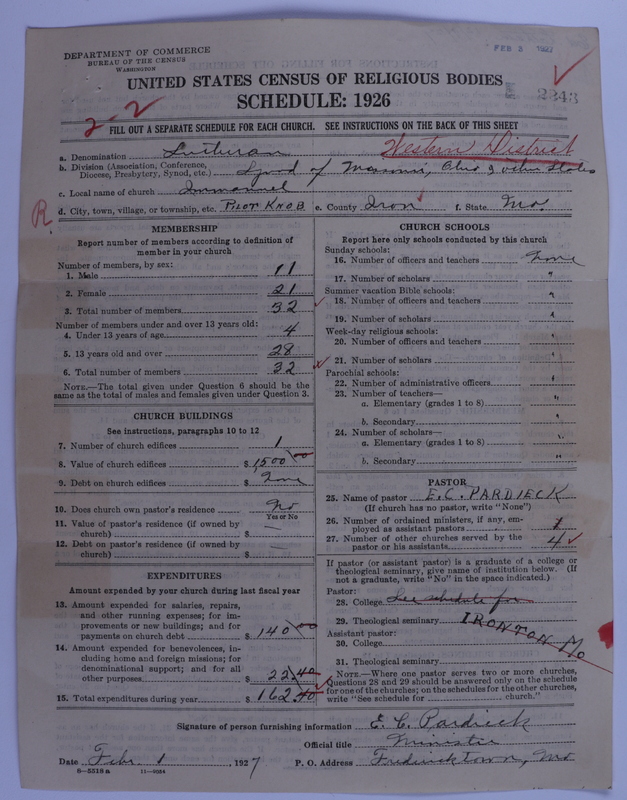 DEPARTMENT OF COMMERCE
BUREAU OF THE CENSUS
WASHINGTON
FEB 3 1927
UNITED STATES CENSUS OF RELIGIOUS BODIES
SCHEDULE: 1926
2343
2-2
FILL OUT A SEPARATE SCHEDULE FOR EACH CHURCH. SEE INSTRUCTIONS ON THE BACK OF THIS SHEET
a. Denomination Lutheran Western District
b. Division (Association, Conference, Diocese, Presbytery, Synod, etc.) Synod of Missouri, Ohio & other States
c. Local name of church Immanuel
R
d. City, town, village, or township, etc. PILOT KNOB e. County Iron f. State Mo.
MEMBERSHIP
Report number of members according to definition of
member in your church
Number of members, by sex:
1. Male 11
2. Female 21
3. Total number of members 32
Number of members under and over 13 years old:
4. Under 13 years of age 4
5. 13 years old and over 28
6. Total number of members 32
NOTE.—The total given under Question 6 should be the
same as the total of males and females given under Question 3.
CHURCH BUILDINGS
See instructions, paragraphs 10 to 12
7. Number of church edifices 1
8. Value of church edifices $ 1,500 00
9. Debt on church edifices $ None
10. Does church own pastor's residence No
Yes or No
11. Value of pastor's residence (if owned by
church) $ —
12. Debt on pastor's residence (if owned by
church) $ —
EXPENDITURES
Amount expended by your church during last fiscal year
13. Amount expended for salaries, repairs,
and other running expenses; for im-
provements or new buildings; and for
payments on church debt $ 140 00
14. Amount expended for benevolences, in-
cluding home and foreign missions; for
denominational support; and for all
other purposes $ 22.40
15. Total expenditures during year $ 162.40
CHURCH SCHOOLS
Report here only schools conducted by this church
Sunday schools:
16. Number of officers and teachers None
17. Number of scholars "
Summer vacation Bible schools:
18. Number of officers and teachers "
19. Number of scholars "
Week-day religious schools:
20. Number of officers and teachers "
21. Number of scholars "
Parochial schools:
22. Number of administrative officers "
23. Number of teachers—
a. Elementary (grades 1 to 8) "
b. Secondary "
24. Number of scholars—
a. Elementary (grades 1 to 8) "
b. Secondary "
PASTOR
25. Name of pastor E. C. PARDIECK
(If church has no pastor, write "None")
26. Number of ordained ministers, if any, em-
ployed as assistant pastors
27. Number of other churches served by the
pastor or his assistants 4
If pastor (or assistant pastor) is a graduate of a college or
theological seminary, give name of institution below. (If
not a graduate, write "No" in the space indicated.)
Pastor:
28. College See schedule for
29. Theological seminary IRONTON MO
Assistant pastor:
30. College
31. Theological seminary
NOTE.—Where one pastor serves two or more churches,
Questions 28 and 29 should be answered only on the schedule
for one of the churches; on the schedules for the other churches,
write "See schedule for church."
Signature of person furnishing information E. C. Pardieck
Official title Minister
Date Febr. 1, 1927 P. O. Address Fredericktown, Mo
6—5518 a 11—9084